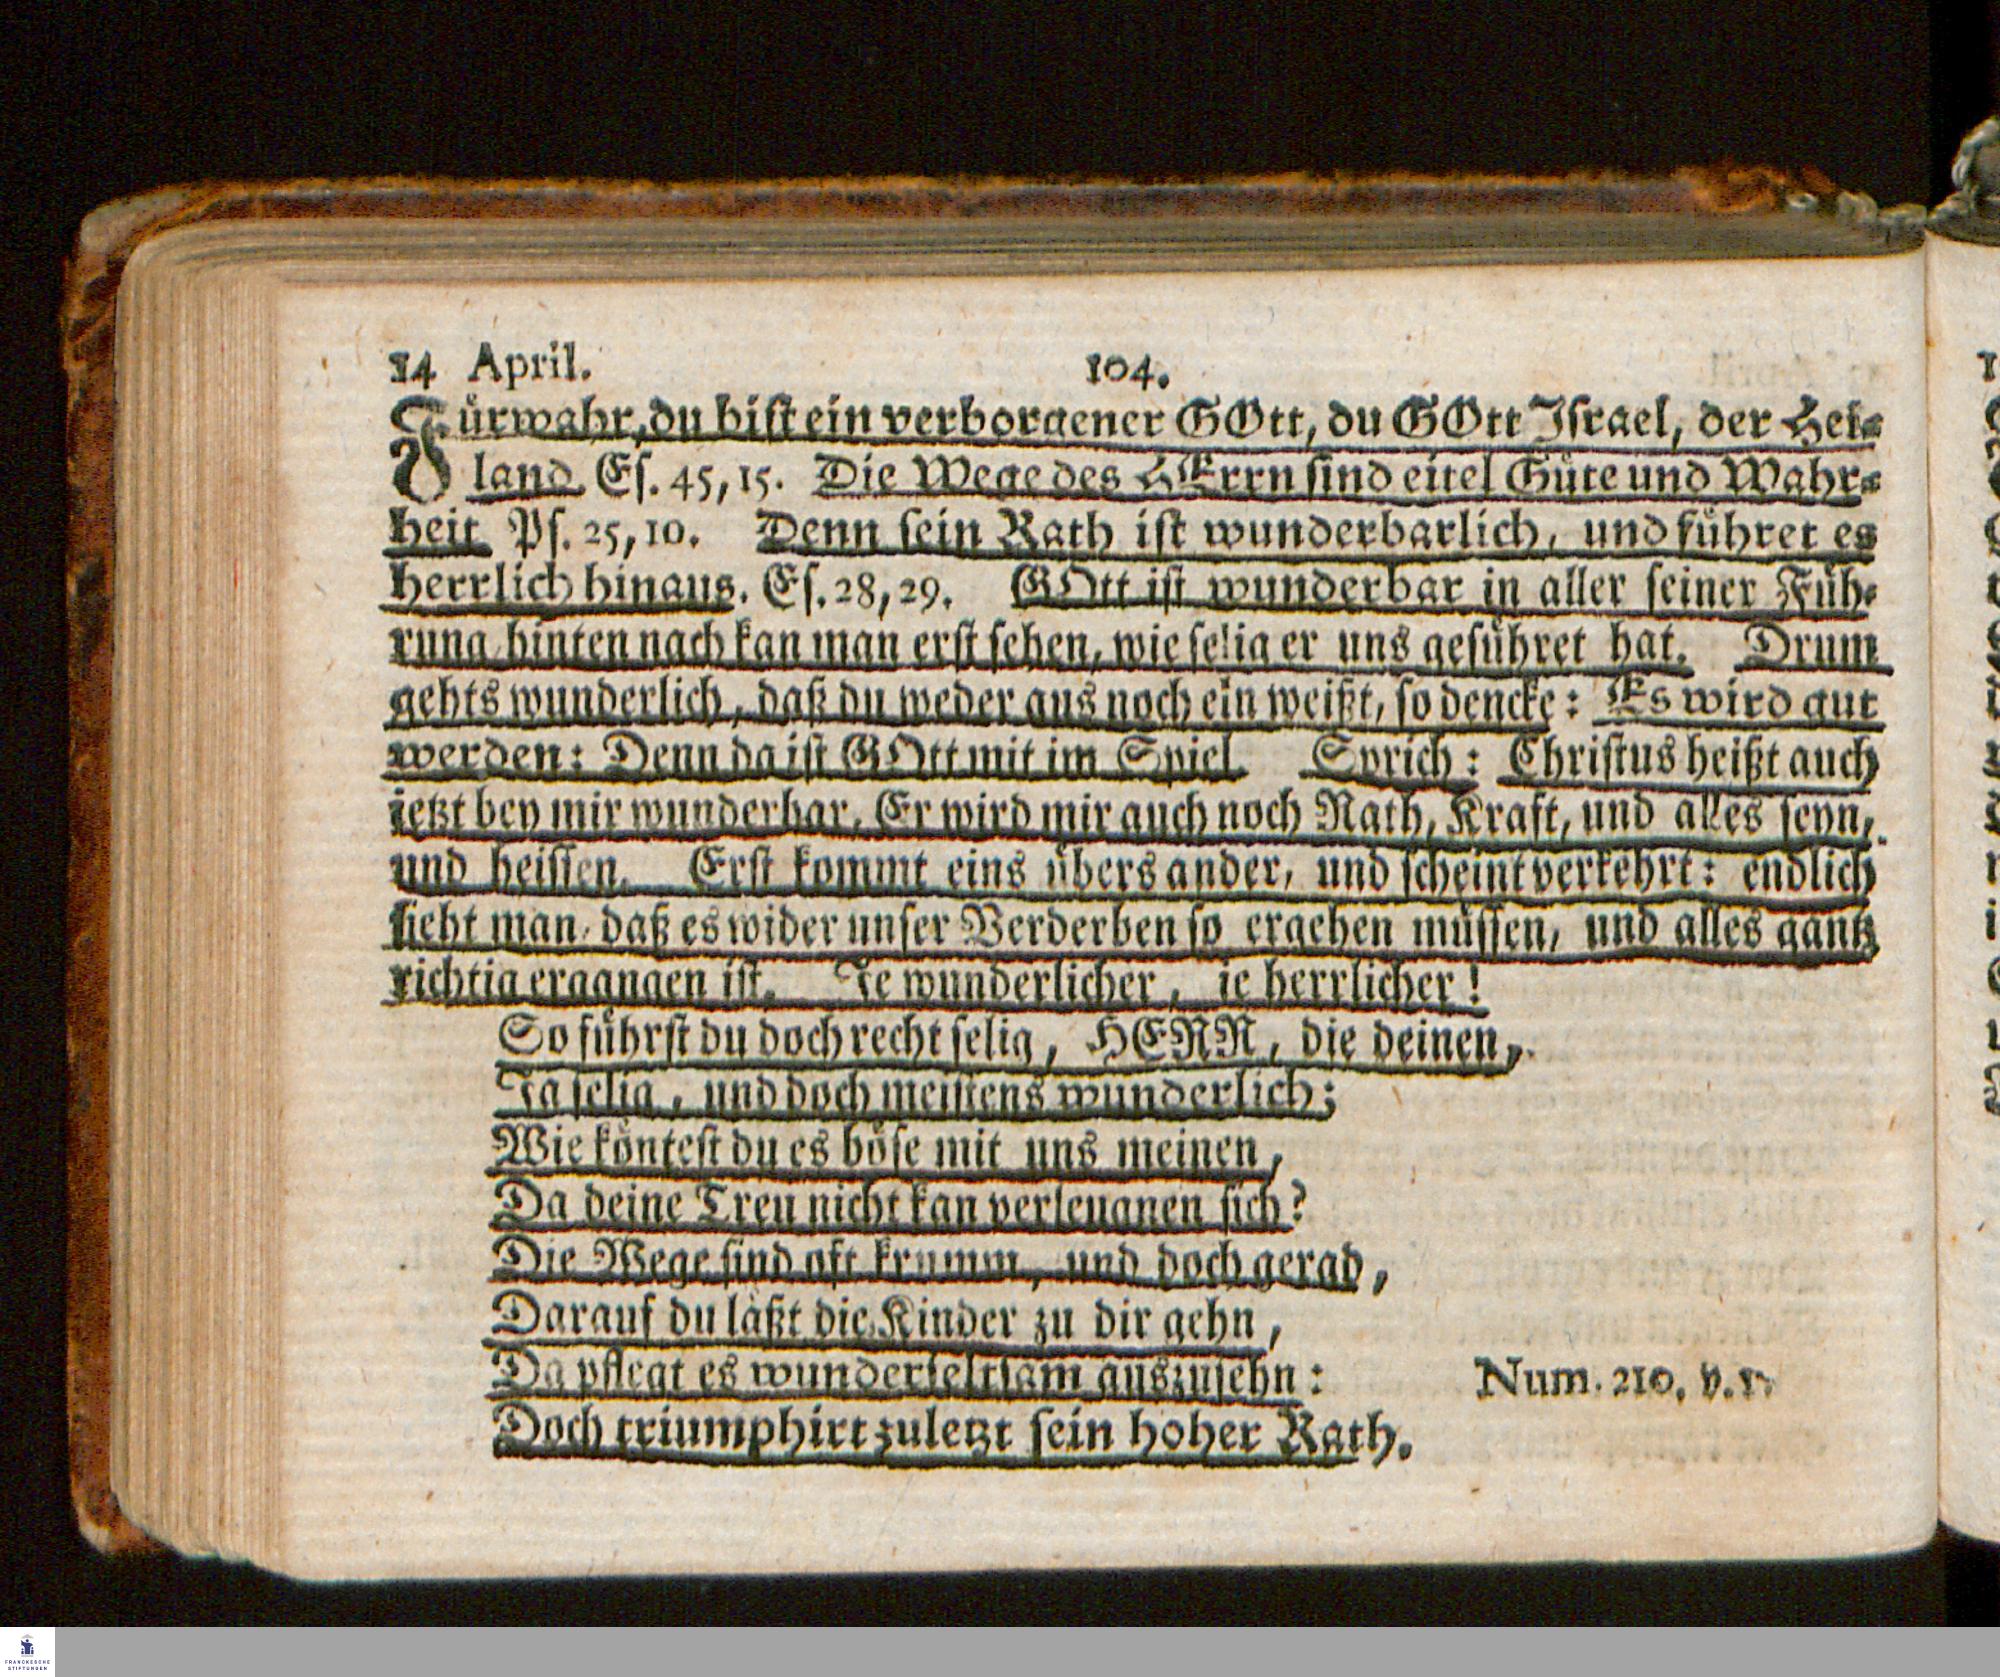 14 April. 104.
Fürwahr, du bist ein verborgener GOtt, du GOtt Israel, der Hei-
land. Es. 45, 15. Die Wege des HErrn sind eitel Güte und Wahr-
heit Ps. 25, 10. Denn sein Rath ist wunderbarlich, und führet es
herrlich hinaus. Es. 28, 29. GOtt ist wunderbar in aller seiner Füh-
rung, hinten nach kan man erst sehen, wie selig er uns geführet hat. Drum
gehts wunderlich, daß du weder aus noch ein weißt, so dencke: Es wird gut
werden: Denn da ist GOtt mit im Spiel. Sprich: Christus heißt auch
jetzt bey mir wunderbar, Er wird mir auch noch Rath, Kraft, und alles seyn,
und heissen. Erst kommt eins übers ander, und scheint verkehrt: endlich
sieht man, daß es wider unser Verderben so ergehen müssen, und alles gantz
richtig ergangen ist. Je wunderlicher, je herrlicher!
So führst du doch recht selig, HERR, die deinen,
Ja selig, und doch meistens wunderlich;
Wie köntest du es böse mit uns meinen,
Da deine Treu nicht kan verleugnen sich?
Die Wege sind oft krumm, und doch gerad,
Darauf du läßt die Kinder zu dir gehn,
Da pflegt es wunderseltsam auszusehn: Num. 210, v. 1.
Doch triumphirt zuletzt sein hoher Rath.
FRANCKESCHE
STIFTUNGEN